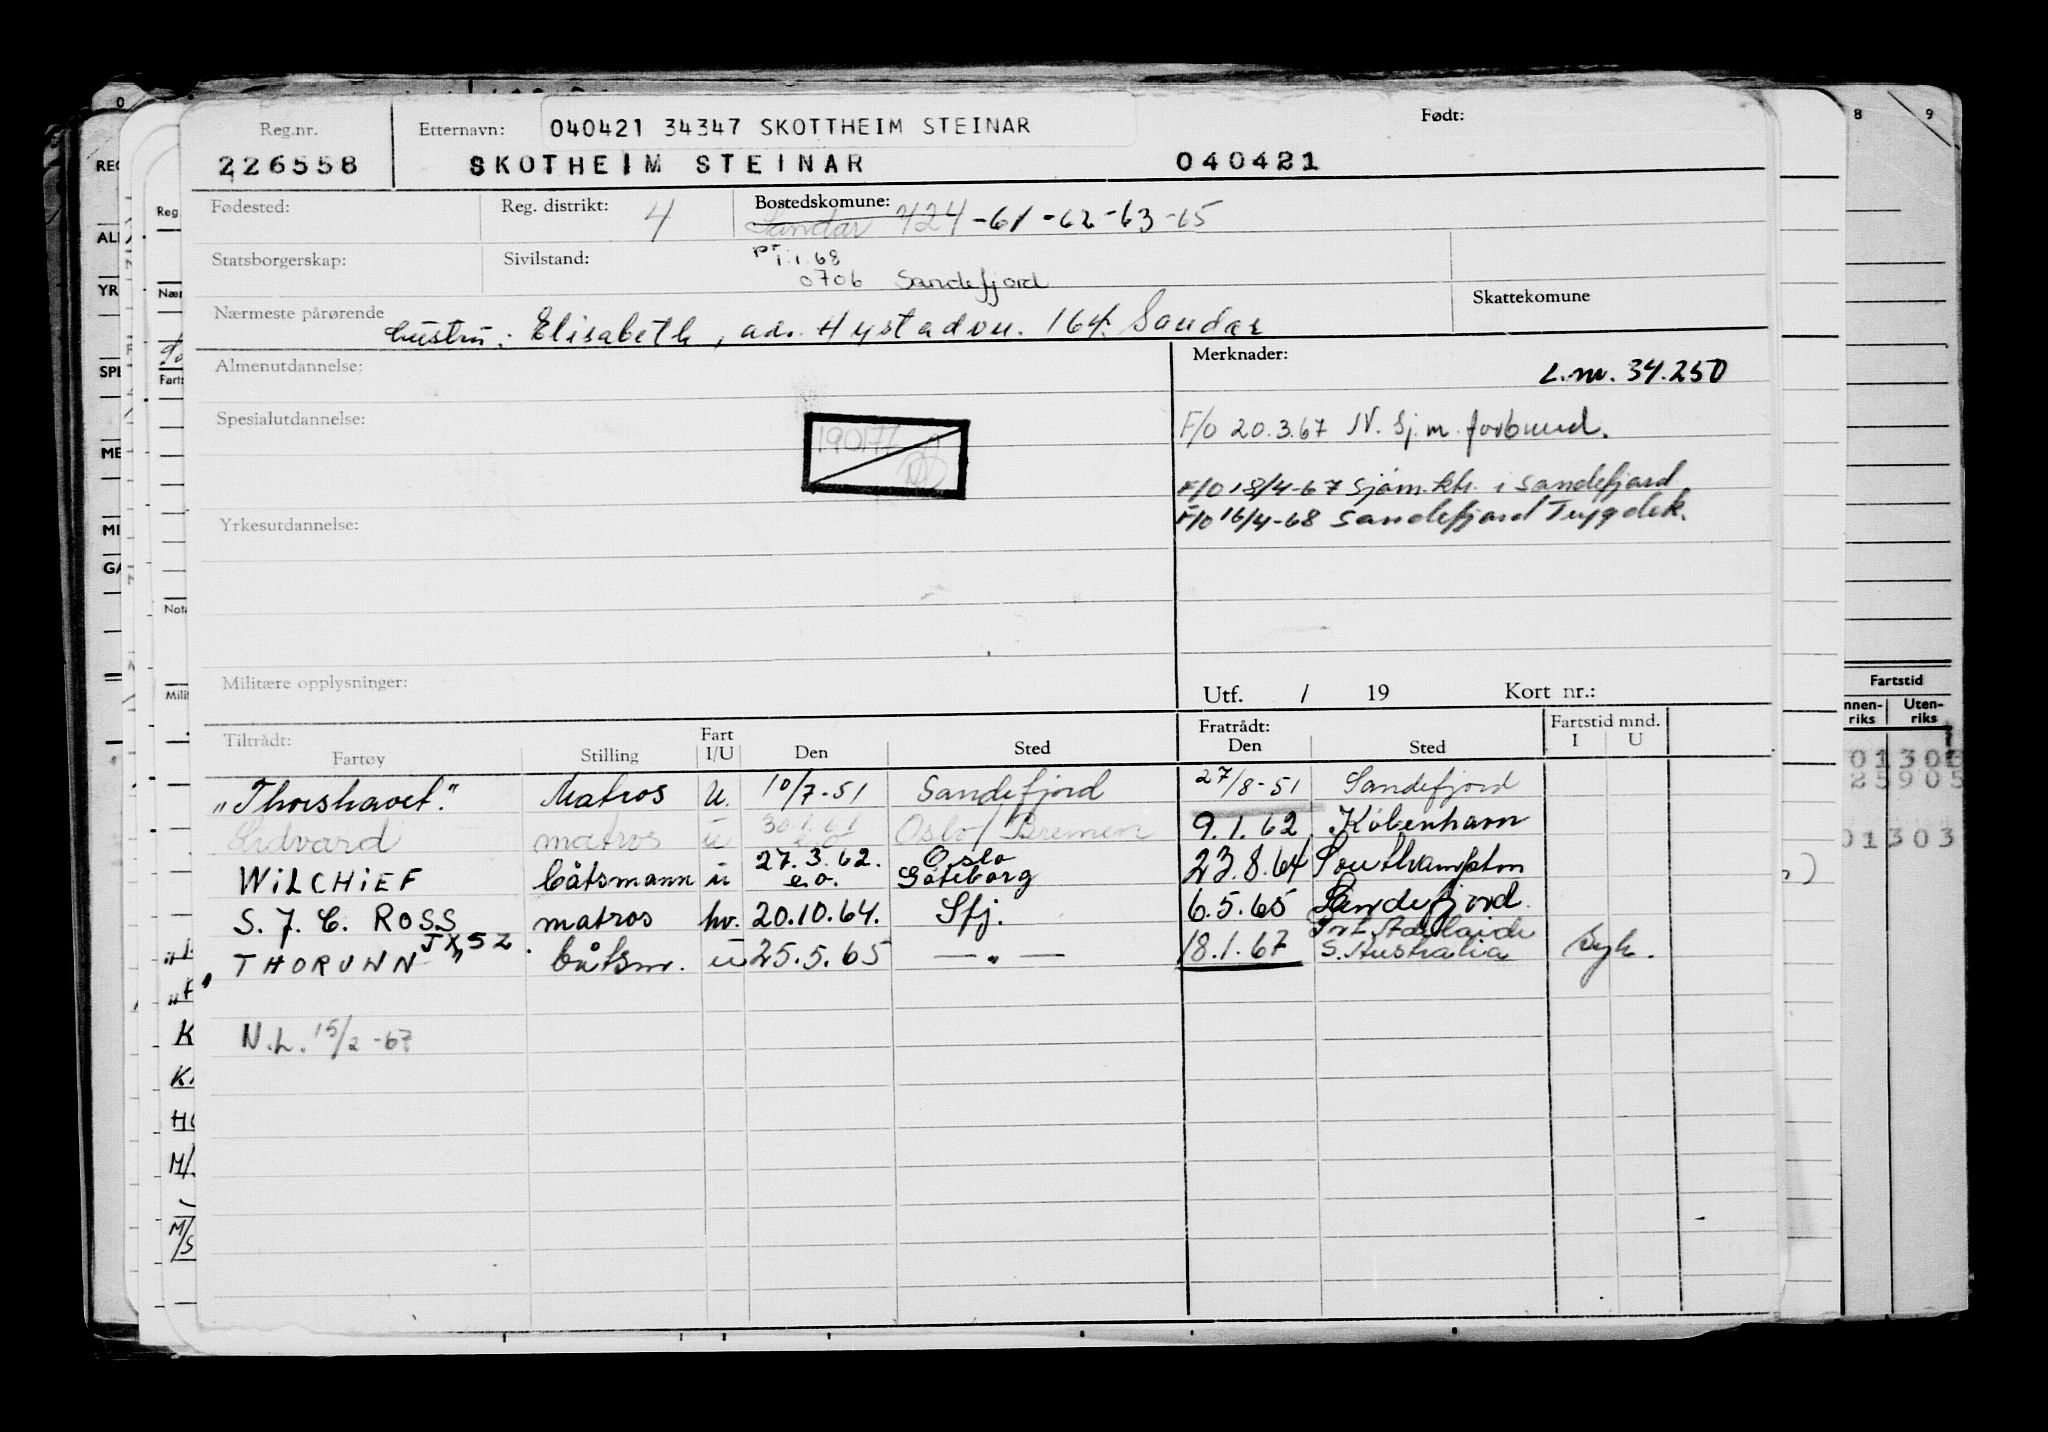 Reg.nr. Etternavn: 040421 34347 SKOTTHEIM STEINAR Født:
226558 SKOTHEIM STEINAR 040421
Fødested: Reg. distrikt: 4 Bostedskomune:
Sandar 724-61-62-63-65
Statsborgerskap: Sivilstand: pr 1.1.68
0706 Sandefjord
Nærmeste pårørende Skattekomune
hustru: Elisabeth, adr. Hystadvn. 164. Sandar
Almenutdannelse: Merknader:
L.nr. 34.250
Spesialutdannelse: F/O 20.3.67 N. Sj.m. forbund.
190177
F/O 18/4-67 Sjøm.ktr. i Sandefjord
F/O 16/4-68 Sandefjord Trygdek.
Yrkesutdannelse:
Militære opplysninger: Utf. / 19 Kort nr.:
Tiltrådt: Fart Fratrådt: Fartstid mnd.
Fartøy Stilling I/U Den Sted Den Sted I U
"Thorshavet." Matros U. 10/7-51 Sandefjord 27/8-51 Sandefjord
Lidvard matros u Oslo/Bremen 9.1.62 København
WILCHIEF båtsmann u 27.3.62. e.o. Oslo Göteborg 23.8.64 Southampton
S. J. C. ROSS matros hv. 20.10.64. Sfj. 6.5.65 Sandefjord.
THORUNN JXSZ. båtsm. u 25.5.65 — " — 18.1.67 Port Adelaide S. Australia Syk.
N.L. 15/2-67
Fartstid
Uten-
riks